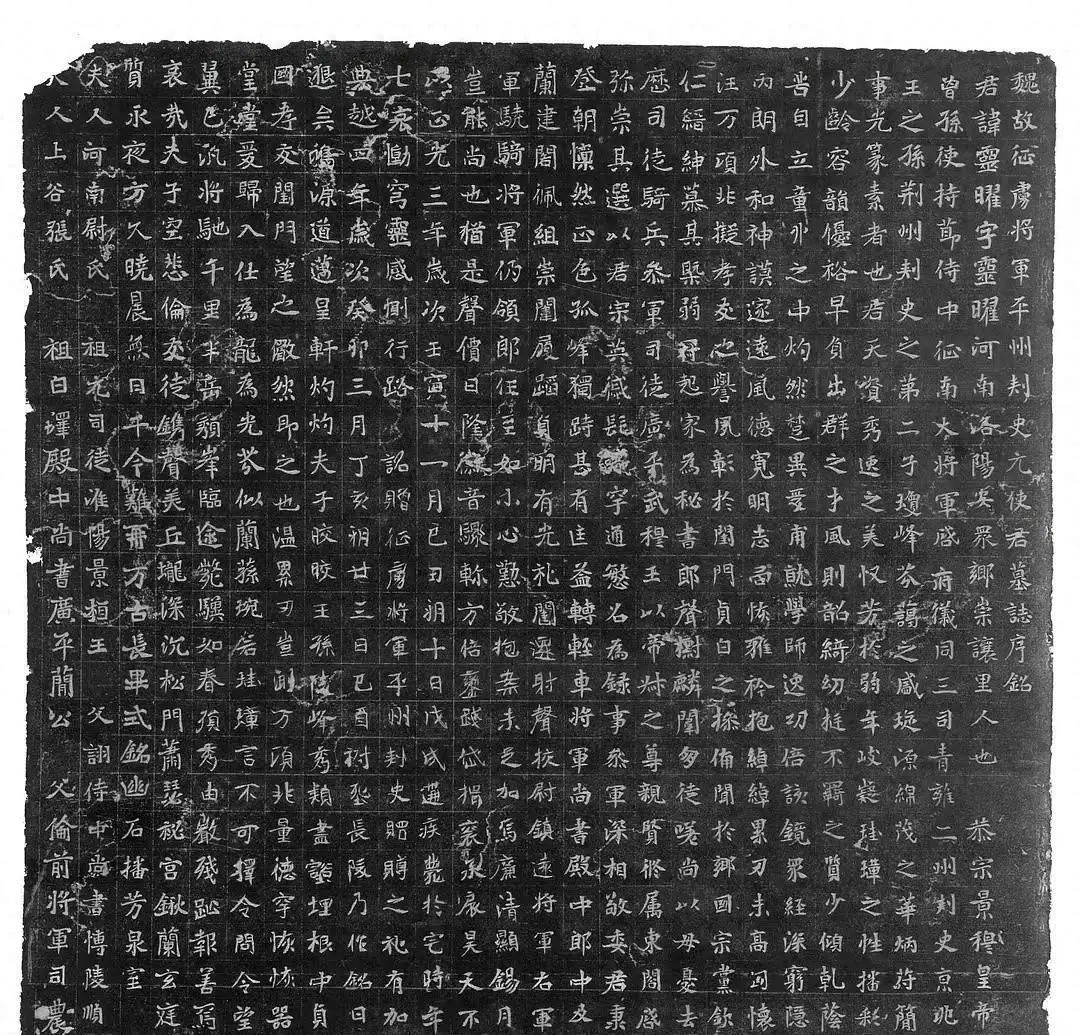 魏故征虜將軍平州刾史元使君墓誌序銘
君諱靈曜字靈曜河南洛陽安眾鄉崇讓里人也 恭宗景穆皇帝
曾孫使持節侍中征南大將軍 府儀同三司青雍二州刾史京兆
王之孫荆州刾史之第二子瓊峰芬藹之盛琁源綿茂之華炳於簡
事光篆素者也君天資秀速之美 芳於弱年岐嶷珪璋之性播彩
少齡容韻優裕早負出群之才風則韶綺幼挺不羈之質少傾乾蔭
自立童丱之中灼然楚異爰甫就學師逸功倍該鏡眾經深窮隱
丙朗外和神謨邃遠風德寬明志 恢雅衿抱綽綽累刃未高泂懷
汪万頃非擬孝友之譽夙彰於閨門貞白之操備聞於鄉國宗黨欽
仁縉紳慕其 弱冠起家為秘書郎聲 麟閣匆徒嗟尚以母憂去
歷司徒騎兵叅軍司徒廣平武穆王以帝叔之尊親賢 属東閤盛
弥崇其選以君宗 宇通慜召為録事叅軍深相敬委君秉
登朝懍然正色孤峰獨跱甚有匡益轉輕車將軍尚書殿中郎中及
蘭建閣佩組崇闈履 貞明有光礼闈遷射聲挍尉鎮遠將軍右軍
軍驍騎將軍仍領郎任至如小心勤敬抱案未足加焉廉清顯錫月
豈能尚也猶是聲價日隆 音驟 方倍 岱 褰 哀昊天不
以正光三年歲次壬寅十一月己丑朔十日戊戌遘疾薨於宅時年
七哀慟穹靈感惻行路 詔贈征虜將軍平州刾史贈賻之礼有加
典越四年歲次癸卯三月丁亥朔廿三日己酉祔塟長陵乃作銘曰
遐矣鴻源道邁皇軒灼灼夫子皎皎王孫 秀類盡 埋根中貞
國孝友閨門望之儼然即之也温累刃豈 万頃非量德宇恢恢器
堂堂爰歸入仕為龍為光芬似蘭蓀琬若珪璋言不可擇令問令望
翼已 將馳千里半岳頹峯臨途 驥如春殞秀由 殘 報善焉
哀哉夫子空悲倫友徒鐫聲美丘壠深沉松門蕭瑟祕宮 蘭玄庭
質永夜方久曉晨無日千今難再万古長畢式銘幽石播芳泉室
夫人河南尉氏 祖元司徒淮陽景桓王 父詡侍中尚書博陵順
夫人上谷張氏 祖白澤殿中尚書廣平簡公 父倫前將軍司農